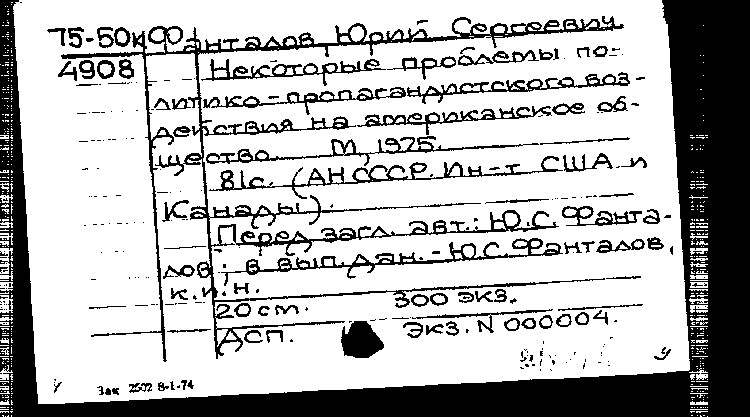 75-50к Фанталов, Юрий Сергеевич
4908 Некоторые проблемы по-
литико-пропагандистского воз-
действия на американское об-
щество. М., 1975.
81с. (АН СССР. Ин-т США и
Канады).
Перед загл. авт.: Ю.С. Фанта-
лов; в вып. дан. - Ю.С. Фанталов,
к.и.н.
20 см. 300 экз.
ДСП. Экз. N 000004.
у
Зак 2502 8-1-74